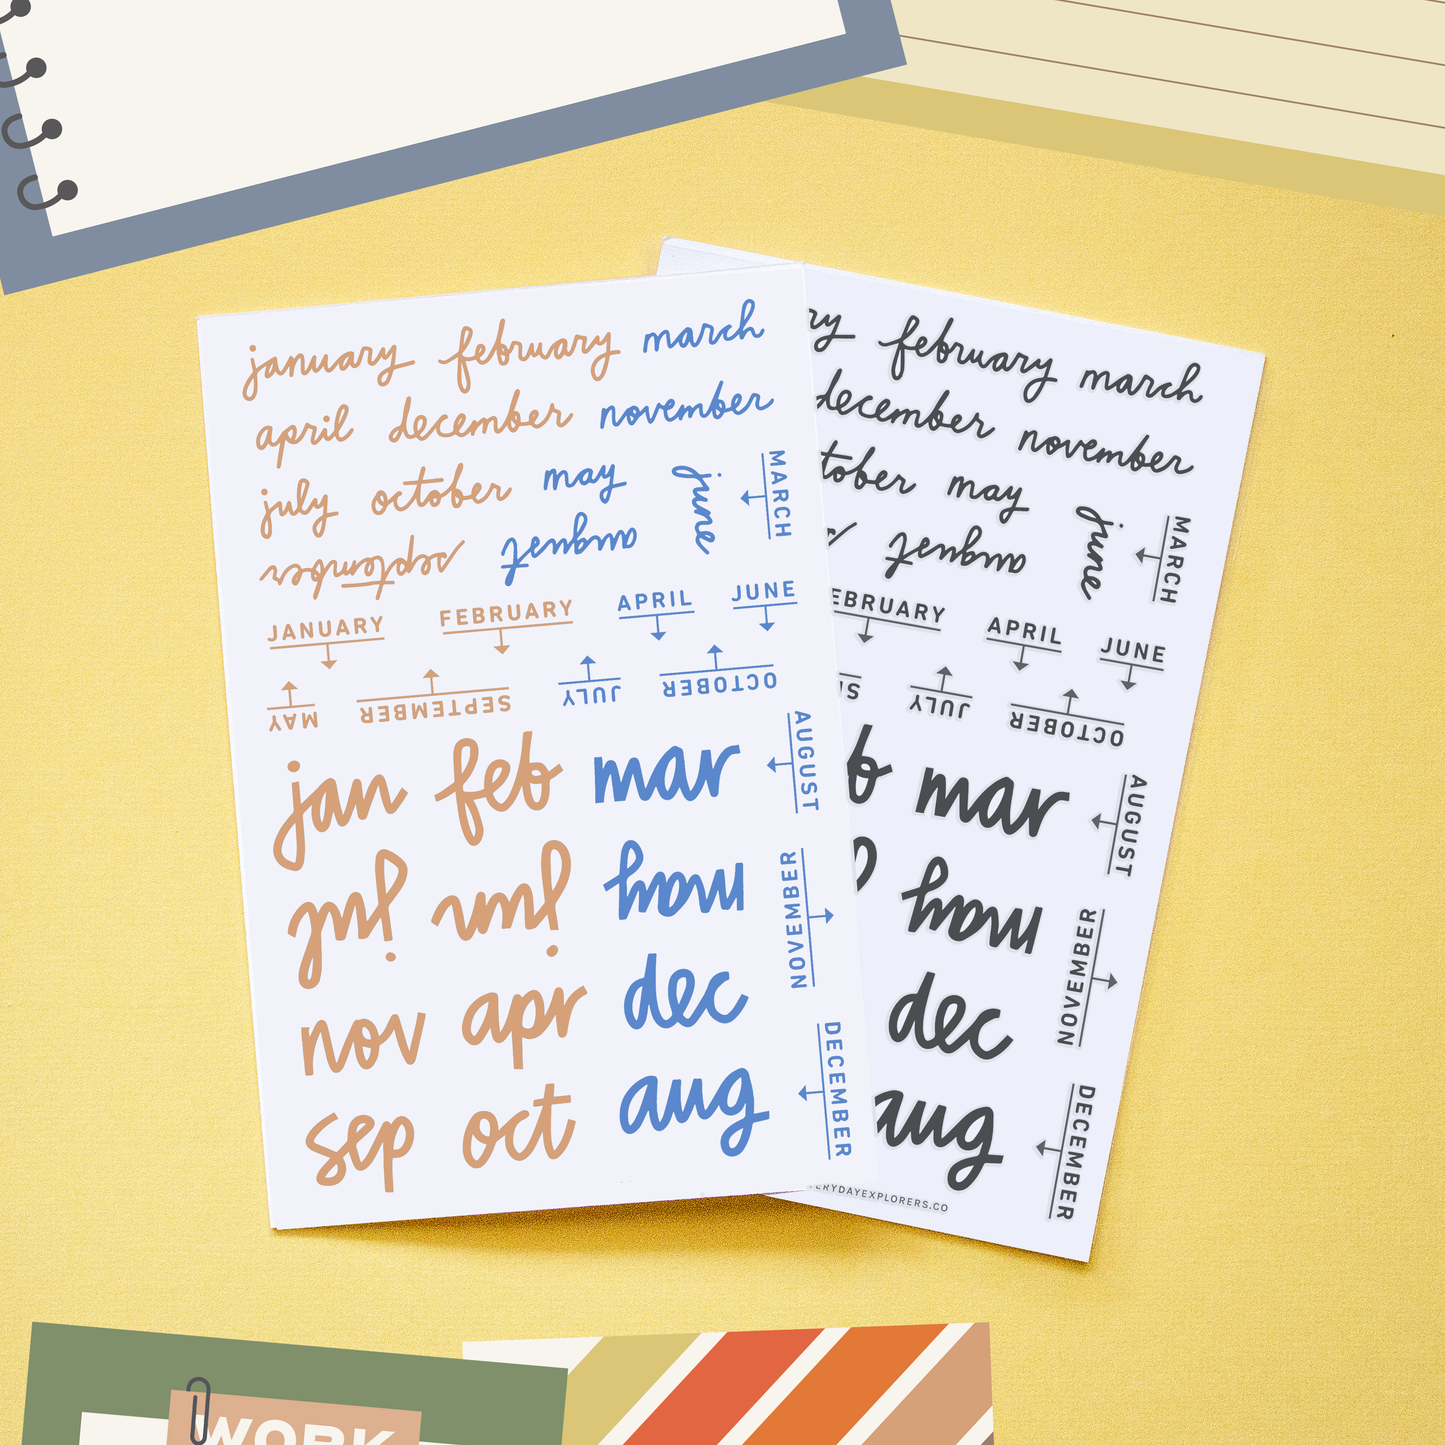 january february march
april december november
july october may june MARCH
september august
JANUARY FEBRUARY APRIL JUNE
MAY SEPTEMBER JULY OCTOBER
jan feb mar AUGUST
jul jun may NOVEMBER
nov apr dec
sep oct aug DECEMBER
ry february march
december november
tober may june MARCH
august
EBRUARY APRIL JUNE
JULY OCTOBER
b mar AUGUST
may NOVEMBER
dec
aug DECEMBER
ERYDAYEXPLORERS.CO
WORK